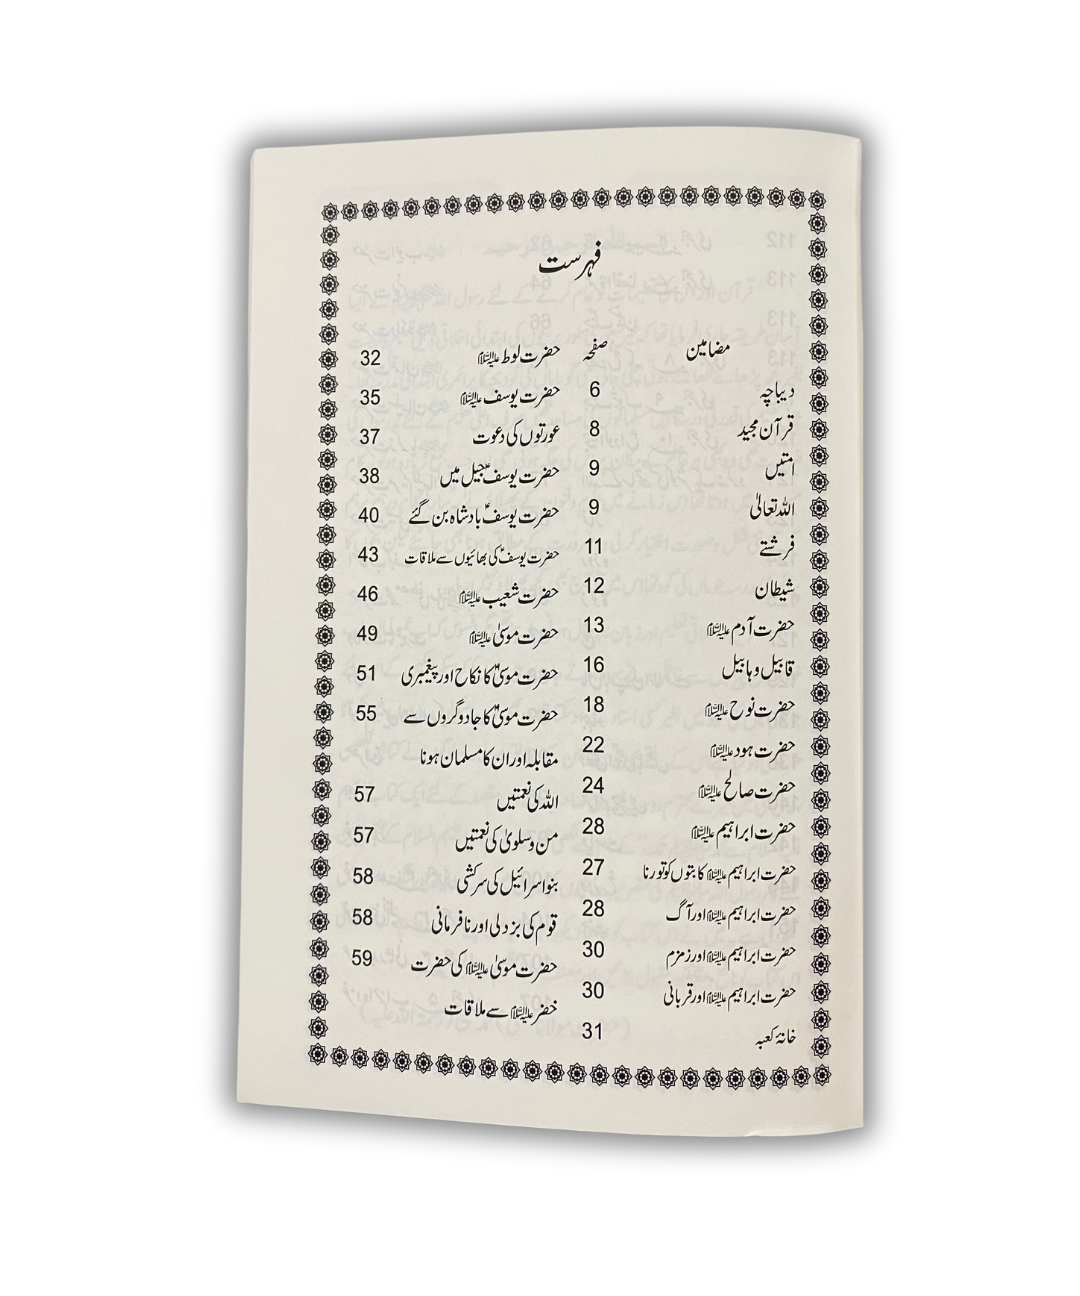 فہرست
مضامین صفحہ
دیباچہ 6
قرآن مجید 8
امتیں 9
اللہ تعالیٰ 9
فرشتے 11
شیطان 12
حضرت آدم علیہ السلام 13
قابیل و ہابیل 16
حضرت نوح علیہ السلام 18
حضرت ہود علیہ السلام 22
حضرت صالح علیہ السلام 24
حضرت ابراہیم علیہ السلام 28
حضرت ابراہیم علیہ السلام کا بتوں کو تورنا 27
حضرت ابراہیم علیہ السلام اور آگ 28
حضرت ابراہیم علیہ السلام اور زمزم 30
حضرت ابراہیم علیہ السلام اور قربانی 30
خانہ کعبہ 31
حضرت لوط علیہ السلام 32
حضرت یوسف علیہ السلام 35
عورتوں کی دعوت 37
حضرت یوسفؑ جیل میں 38
حضرت یوسفؑ بادشاہ بن گئے 40
حضرت یوسفؑ کی بھائیوں سے ملاقات 43
حضرت شعیب علیہ السلام 46
حضرت موسیٰ علیہ السلام 49
حضرت موسیٰؑ کا نکاح اور پیغمبری 51
حضرت موسیٰؑ کا جادوگروں سے 55
مقابلہ اور ان کا مسلمان ہونا
اللہ کی نعمتیں 57
من و سلویٰ کی نعمتیں 57
بنو اسرائیل کی سرکشی 58
قوم کی بزدلی اور نافرمانی 58
حضرت موسیٰ علیہ السلام کی حضرت 59
خضر علیہ السلام سے ملاقات